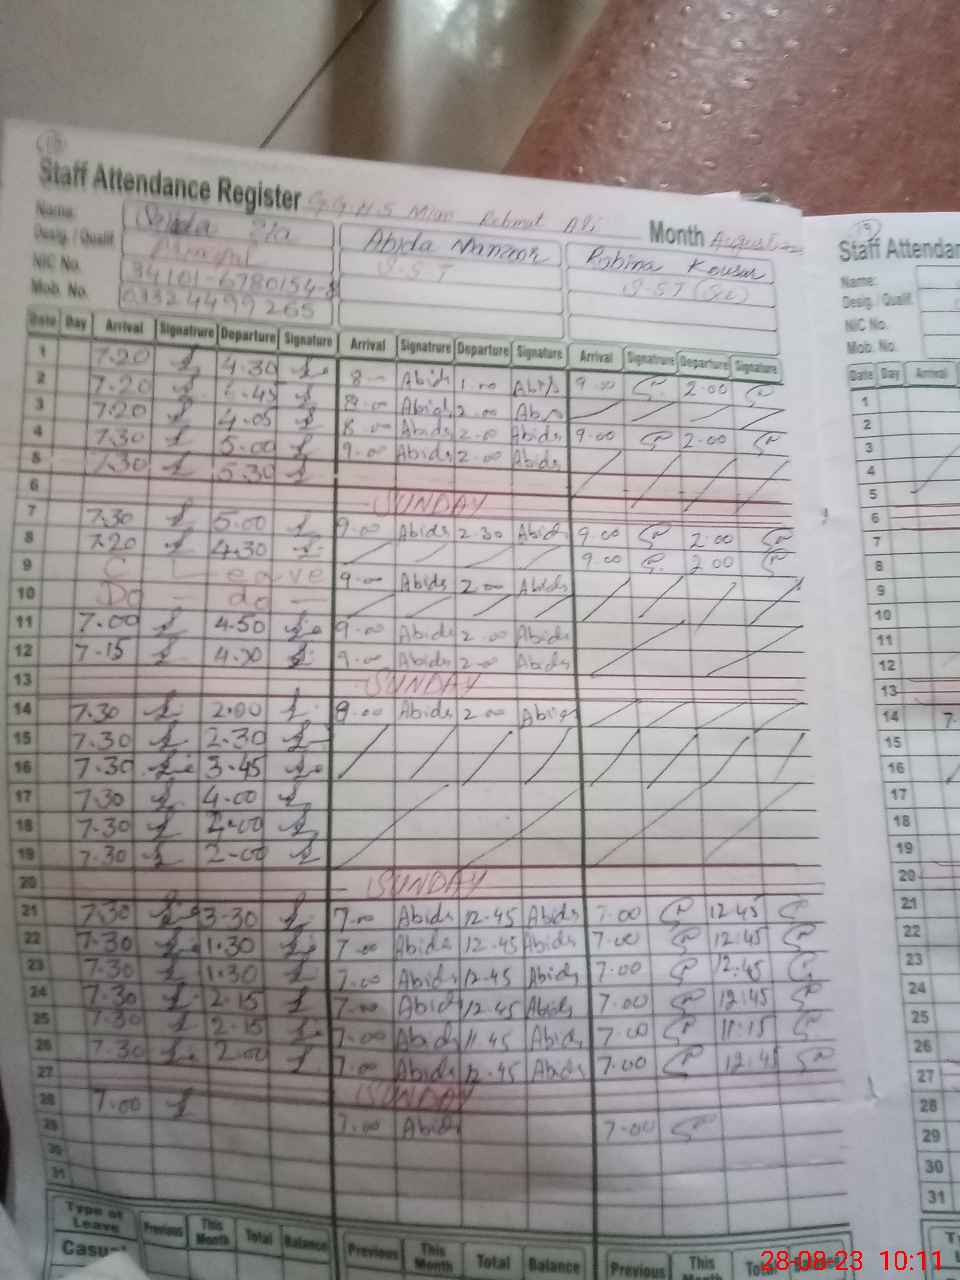 Staff Attendance Register G.G.H.S Mian Rehmat Ali Month August
Name: Abida Manzoor Rubina Kousar
Desig. / Qualif Principal S.S.T S.ST (Sc)
NIC No. 34101-6780154-8
Mob. No. 0332 4499265
Date Day Arrival Signatrure Departure Signature Arrival Signatrure Departure Signature Arrival Signatrure Departure Signature
1 7.20 4.30 8.00 Abids 1.00 Abids 9.00 2.00
2 7.20 Abids 2.00
3 7.20 4.05 8.00 Abids 2.00 Abids 9.00 2.00
4 7.30 5.00 9.00 Abids 2.00 Abids
5 7.30 5.30
6 SUNDAY
7 7.30 5.00 9.00 Abids 2.30 Abids 9.00 2:00
8 7.20 4.30 9.00 2.00
9 C Leave 9.00 Abids 2.00 Abids
10 Do - do -
11 7.00 4.50 9.00 Abids 2.00 Abids
12 7.15 9.00 Abids 2.00 Abids
13 SUNDAY
14 7.30 2.00 Abids 2.00 Abids
15 7.30 2.30
16 7.30 3.45
17 7.30 4.00
18 7.30 2.00
19 7.30 2.00
20 SUNDAY
21 7.30 3.30 7.00 Abids 12.45 Abids 7.00 12.45
22 7.30 1.30 7.00 Abids 12.45 Abids 7.00 12:45
23 7.30 1.30 7.00 Abids 12.45 Abids 7.00 12:45
24 7.30 2.15 7.00 Abids 12.45 Abids 7.00 12:45
25 7.30 2.15 7.00 Abids 11.45 Abids 7.00 11:15
26 7.30 2.00 7.00 Abids 12.45 Abids 7.00 12:45
27 SUNDAY
28 7.00 7.00 Abids 7.00
29
30
31
Type of Leave Previous This Month Total Balance Previous This Month Total Balance Previous This Month Total
Casual
Staff Attendan
Name:
Desig. / Qualif
NIC No.
Mob. No.
Date Day Arrival
1
2
3
4
5
6
7
8
9
10
11
12
13
14 7.
15
16
17
18
19
20
21
22
23
24
25
26
27
28
29
30
31
28-08-23 10:11